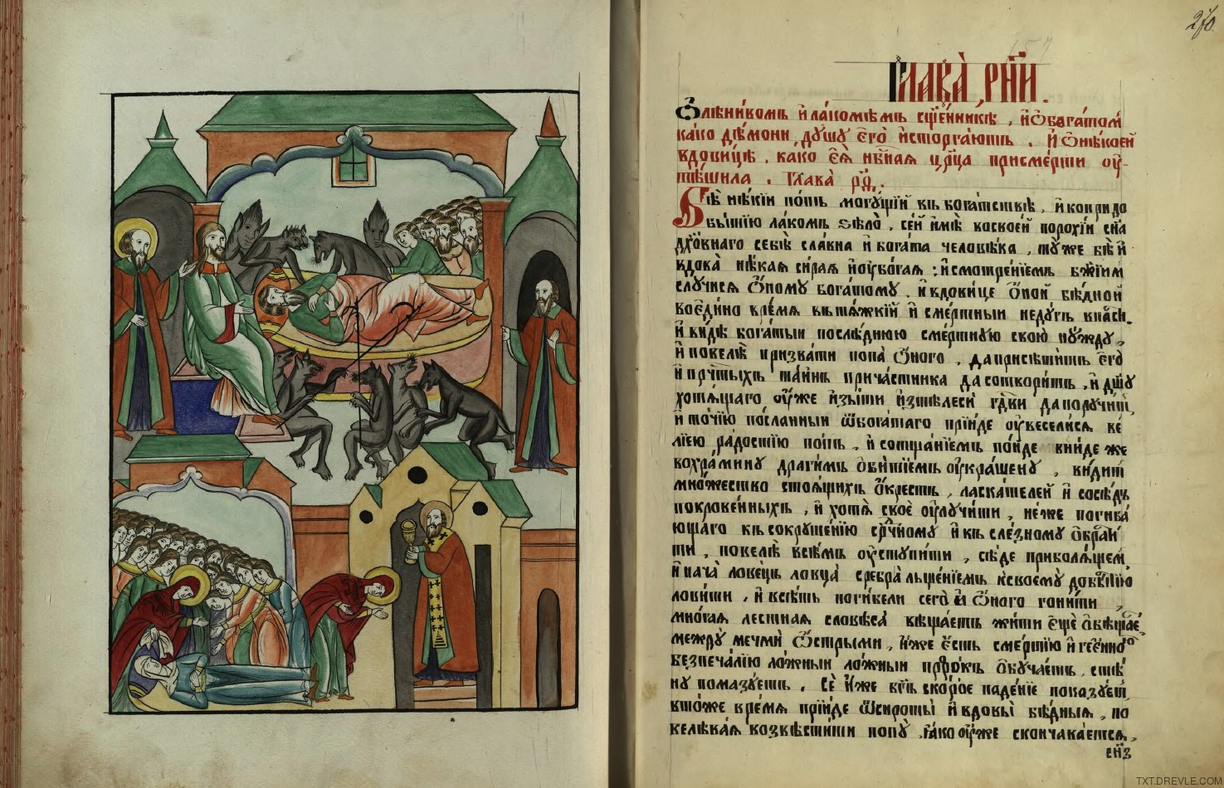 270
ГЛАВА̀ РН҃И.
Ѽ лѣнивомъ и҆ лакомѣмъ сщ҃е́нникѣ, и҆ ѡ҆богатом̾
ка́ко де́мони, дꙋ́шꙋ є҆гѡ̀ и҆сторга́ютъ. и҆ ѡ҆нѣ́коей
вдови́цѣ, ка́ко є҆ѧ̀ нб҃наѧ цр҃ца присме́рти ᲂу҆-
тѣ́шила. Глава̀ рѳ҃.
Бѣ̀ нѣ́кїи по́пъ могꙋ́щїй въ бога́тствѣ, и҆ко
бы́тїю ла́комъ ѕѣлѡ̀, се́й и҆мѣ̀ во свое́й поро́хїи сн҃а
дх҃о́внаго себѣ̀ сла́вна и҆ бога́та человѣ́ка, тꙋ́ же бѣ̀ и҆
вдова̀ нѣ́каѧ си́раѧ и҆ᲂу҆бо́гаѧ: и҆смотре́нїемъ бж҃їим
случи́сѧ ѻ҆́номꙋ бога́томꙋ, и҆ вдови́це ѻ҆́ной бѣ́дной
воеди́но вре́мѧ въ тѧ́жкїй и҆ сме́ртныи недꙋ́гъ впа́сти.
и҆ ви́дѣ бога́тыи послѣ́днюю сме́ртнꙋю свою̀ нꙋ́ждꙋ,
и҆ повелѣ̀ призва́ти попа̀ ѻ҆́ного, да присѣти́тъ є҆го̀
и҆ прч҃тыхъ та́инъ прича́стника да сотвори́тъ, и҆ дш҃ꙋ
хотѧ́щаго ᲂу҆же и҆зы́ти и҆з̾тѣлесѐ гдⷭ҇ви да порꙋчи́тъ,
и҆ то́чїю по́сланныи ѿбога́таго прїи́де ᲂу҆весели́сѧ ве
лїею ра́достїю по́пъ, и҆ сотща́нїемъ по́йде вни́де же
вохра́минꙋ драги́мъ ѻ҆би́тїемъ ᲂу҆кра́шенꙋ, ви́дит
мно́жество стоѧ́щихъ ѻ҆́крестъ, ласка́телей и҆ сосѣ́дъ
и҆ хотѧ̀ своѐ ᲂу҆лꙋчи́ти, не́же погиба́
ющаго къ сокрꙋше́нїю срⷣе́чномꙋ и҆ къ сле́зномꙋ ѻ҆брати́
ти, повелѣ̀ всѣ́мъ ᲂу҆стꙋпи́ти, сѣ́де при болѧ́щем,
и҆ нача̀ лове́цъ ловца̀ сребра̀ льще́нїемъ к своемꙋ̀
лови́ти, и҆ в сѣ́ть поги́бели сего̀ и҆ ѻ҆́ного гони́ти
мно́гаѧ ле́стнаѧ словеса̀ вѣща́етъ жи́ти є҆щѐ ѻ҆бѣща́е
междꙋ̀ мечмѝ ѻ҆́стрыми, и҆́же є҆́сть сме́ртїю и҆ гее́нною
безпеча́лїю ло́жныи ло́жныи прⷪ҇ро́къ ѻ҆бꙋча́етъ, стѣ́
нꙋ помазꙋ́етъ. Сѐ и҆́же къ неѝ ско́рое паде́нїе показꙋ́ет
вто́же вре́мѧ прїи́де ѿсироты̀ и҆ вдовы̀ бѣ́дныѧ, по
велѣва́ѧ возвѣсти́ти попꙋ̀, ꙗ҆́ко ᲂу҆́же сконча́ваетсѧ,
TXT.DREVLE.COM